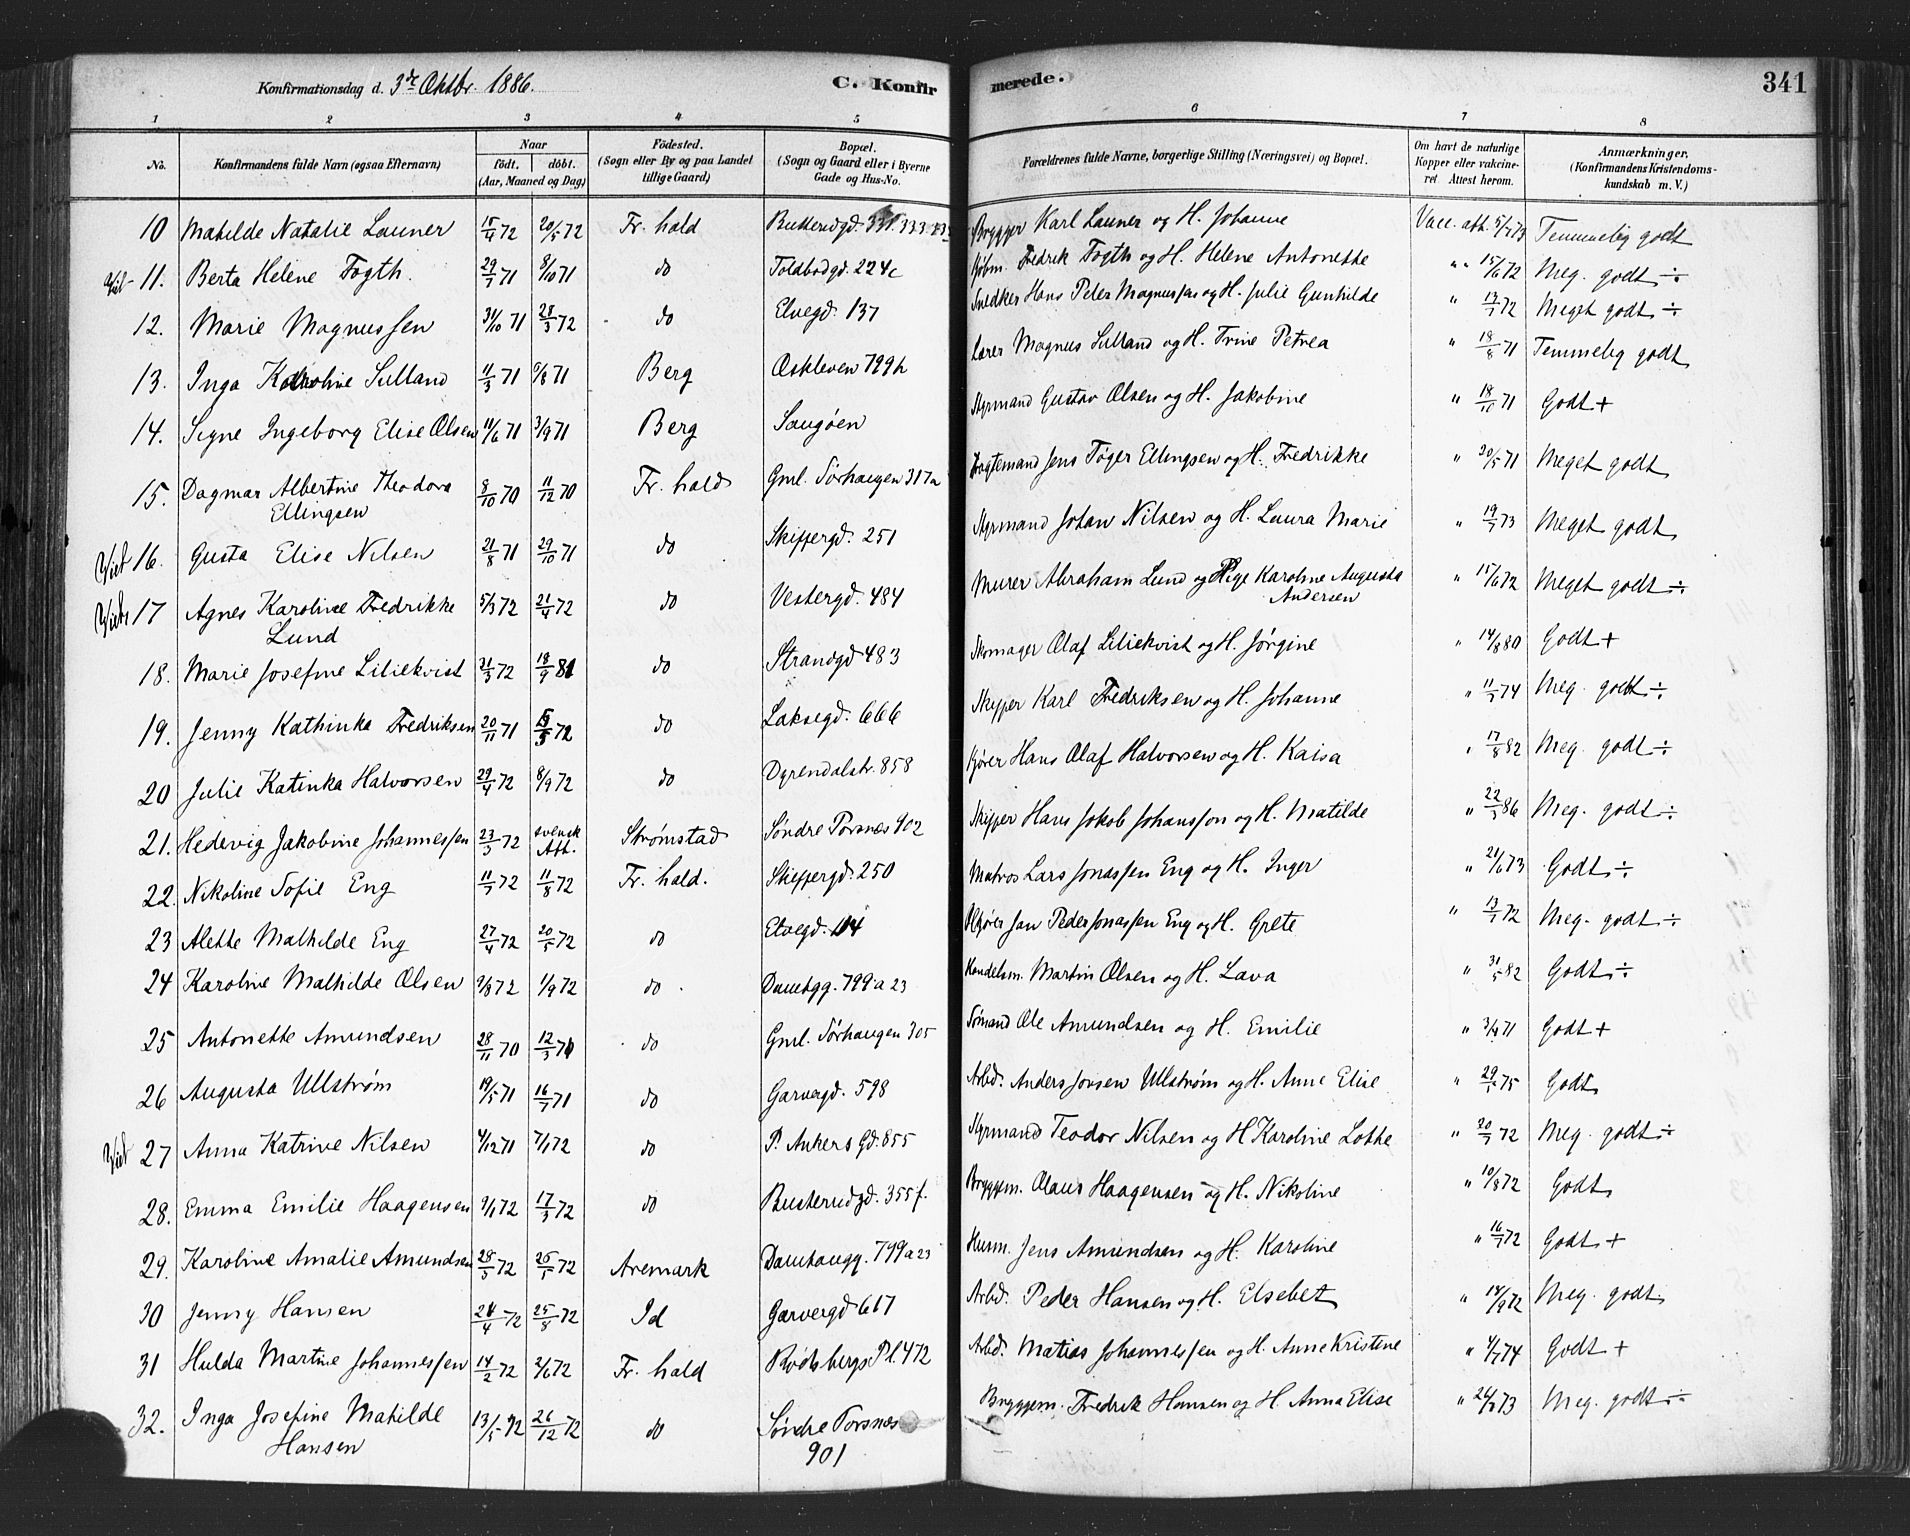 Konfirmationsdag d. 3de Oktbr. 1886.
C. Konfirmerede.
341
1 2 3 4 5 6 7 8
No.
Konfirmandens fulde Navn (ogsaa Efternavn)
Naar
født. døbt.
(Aar, Maaned og Dag)
Fødested.
(Sogn eller By og paa Landet
tillige Gaard)
Bopæl.
(Sogn og Gaard eller i Byerne
Gade og Hus-No.
Forældrenes fulde Navne, borgerlige Stilling (Næringsvei) og Bopæl.
Om havt de naturlige
Kopper eller vakcine-
ret Attest herom.
Anmærkninger.
(Konfirmandens Kristendoms-
kundskab m. V.)
10 Matilde Natalie Launer 15/4 72 20/5 72 Fr. hald Busterudgd. Brygger Karl Launer og H. Johanne Vacc. att. Temmelig godt
11. Berta Helene Fogth. 29/7 71 8/10 71 do Toldbodgd. 224c Kjøbm. Fredrik Fogth og H. Helene Antonette " " 15/6 72 Meg. godt ÷
12. Marie Magnussen 31/10 71 28/3 72 do Elvegd. 137 Snedker Hans Peter Magnussen og H. Julie Gunhilde " 72 Meget godt ÷
13. Inga Karoline Sulland 11/3 71 71 Berg Oskleven 799h Lærer Magnus Sulland og H. Trine Petrea " 18/8 71 Temmelig godt
14. Signe Ingeborg Elise Olsen 11/6 71 3/9 71 Berg Saugøen Styrmand Gustav Olsen og H. Jakobine " 18/10 71 Godt +
15. Dagmar Albertine Theodora
Ellingsen 8/10 70 11/12 70 Fr. hald Gml. Sørhaugen 317a Fragtemand Jens Tøger Ellingsen og H. Fredrikke " 20/5 71 Meget godt
Vidt 16. Gusta Elise Nilsen 21/8 71 29/10 71 do Skippergd. 251 Styrmand Johan Nilsen og H. Laura Marie " 19/7 73 Meget godt
17 Agnes Karoline Fredrikke
Lund 5/3 72 21/4 72 do Vestergd. 484 Murer Abraham Lund og Pige Karoline Augusta
Andersen " 15/6 72 Meget godt ÷
18. Marie Josefine Liliekvist 21/3 72 18/9 81 do Strandgd 483 Skomager Olaf Liliekvist og H. Jørgine " 14/8 80 Godt +
19. Jenny Kathinka Fredriksen 20/11 71 72 do Laksegd. 666 Skipper Karl Fredriksen og H. Johanne " 11/7 74 Meg. godt ÷
20 Julie Katinka Halvorsen 29/4 72 8/9 72 do Dyrendalstr. 858 Kjører Hans Olaf Halvorsen og H. Kaisa " 17/8 82 Meg. godt ÷
21. Hedevig Jakobine Johannessen 23/3 72 svensk
Att. Strømstad Søndre Torsnæs 902 Skipper Hans Jakob Johansson og H. Matilde " 22/3 86 Meg. godt ÷
22. Nikoline Sofie Eng 11/7 72 11/8 72 Fr. hald. Skippergd. 250 Matros Lars Jonassen Eng og H. Inger " 21/6 73 Godt ÷
23 Alette Mathilde Eng 27/4 72 20/5 72 do Elvegd. 114 Jan Peder Jonassen Eng og H. Grete " 13/7 72 Meg. godt ÷
24 Karoline Mathilde Olsen 9/8 72 1/9 72 do Damhgg. 799 a 23 Handelsm. Martin Olsen og H. Lava " 31/5 82 Godt ÷
25 Antonette Amundsen 28/11 70 12/3 71 do Gml. Sørhaugen 305 Sømand Ole Amundsen og H. Emilie " 71 Godt +
26 Augusta Ullstrøm 19/5 71 16/7 71 do Garvergd. 598 Arbd. Anders Jonsen Ullstrøm og H. Anne Elise " 75 Godt
27 Anna Katrine Nilsen 4/12 71 7/1 72 do P. Ankers Gd. 855 Styrmand Teodor Nilsen og H Karoline Lotte " 20/7 72 Meg. godt ÷
28. Emma Emilie Haagensen 9/1 72 17/3 72 do Busterudgd. 355 f. Bryggem. Olaus Haagensen og H. Nikoline " 10/8 72 Godt
29. Karoline Amalie Amundsen 28/3 72 72 Aremark Damhaugg. 799 a 23 Husm. Jens Amundsen og H. Karoline " 16/7 72 Godt +
30 Jenny Hansen 24/4 72 25/8 72 Id Garvergd 617 Arbd. Peder Hansen og H. Elsebet " 14/9 72 Meg. godt
31 Hulda Martine Johannessen 14/2 72 2/6 72 Fr. hald Rødsbergs Pl. 472 Arbd. Matias Johannessen og H. Anne Kristine " 4/7 74 Godt +
32. Inga Josefine Matilde
Hansen 13/5 72 26/12 72 do Søndre Torsnæs
901 Bryggem. Fredrik Hansen og H. Anna Elise " 73 Meg. godt ÷